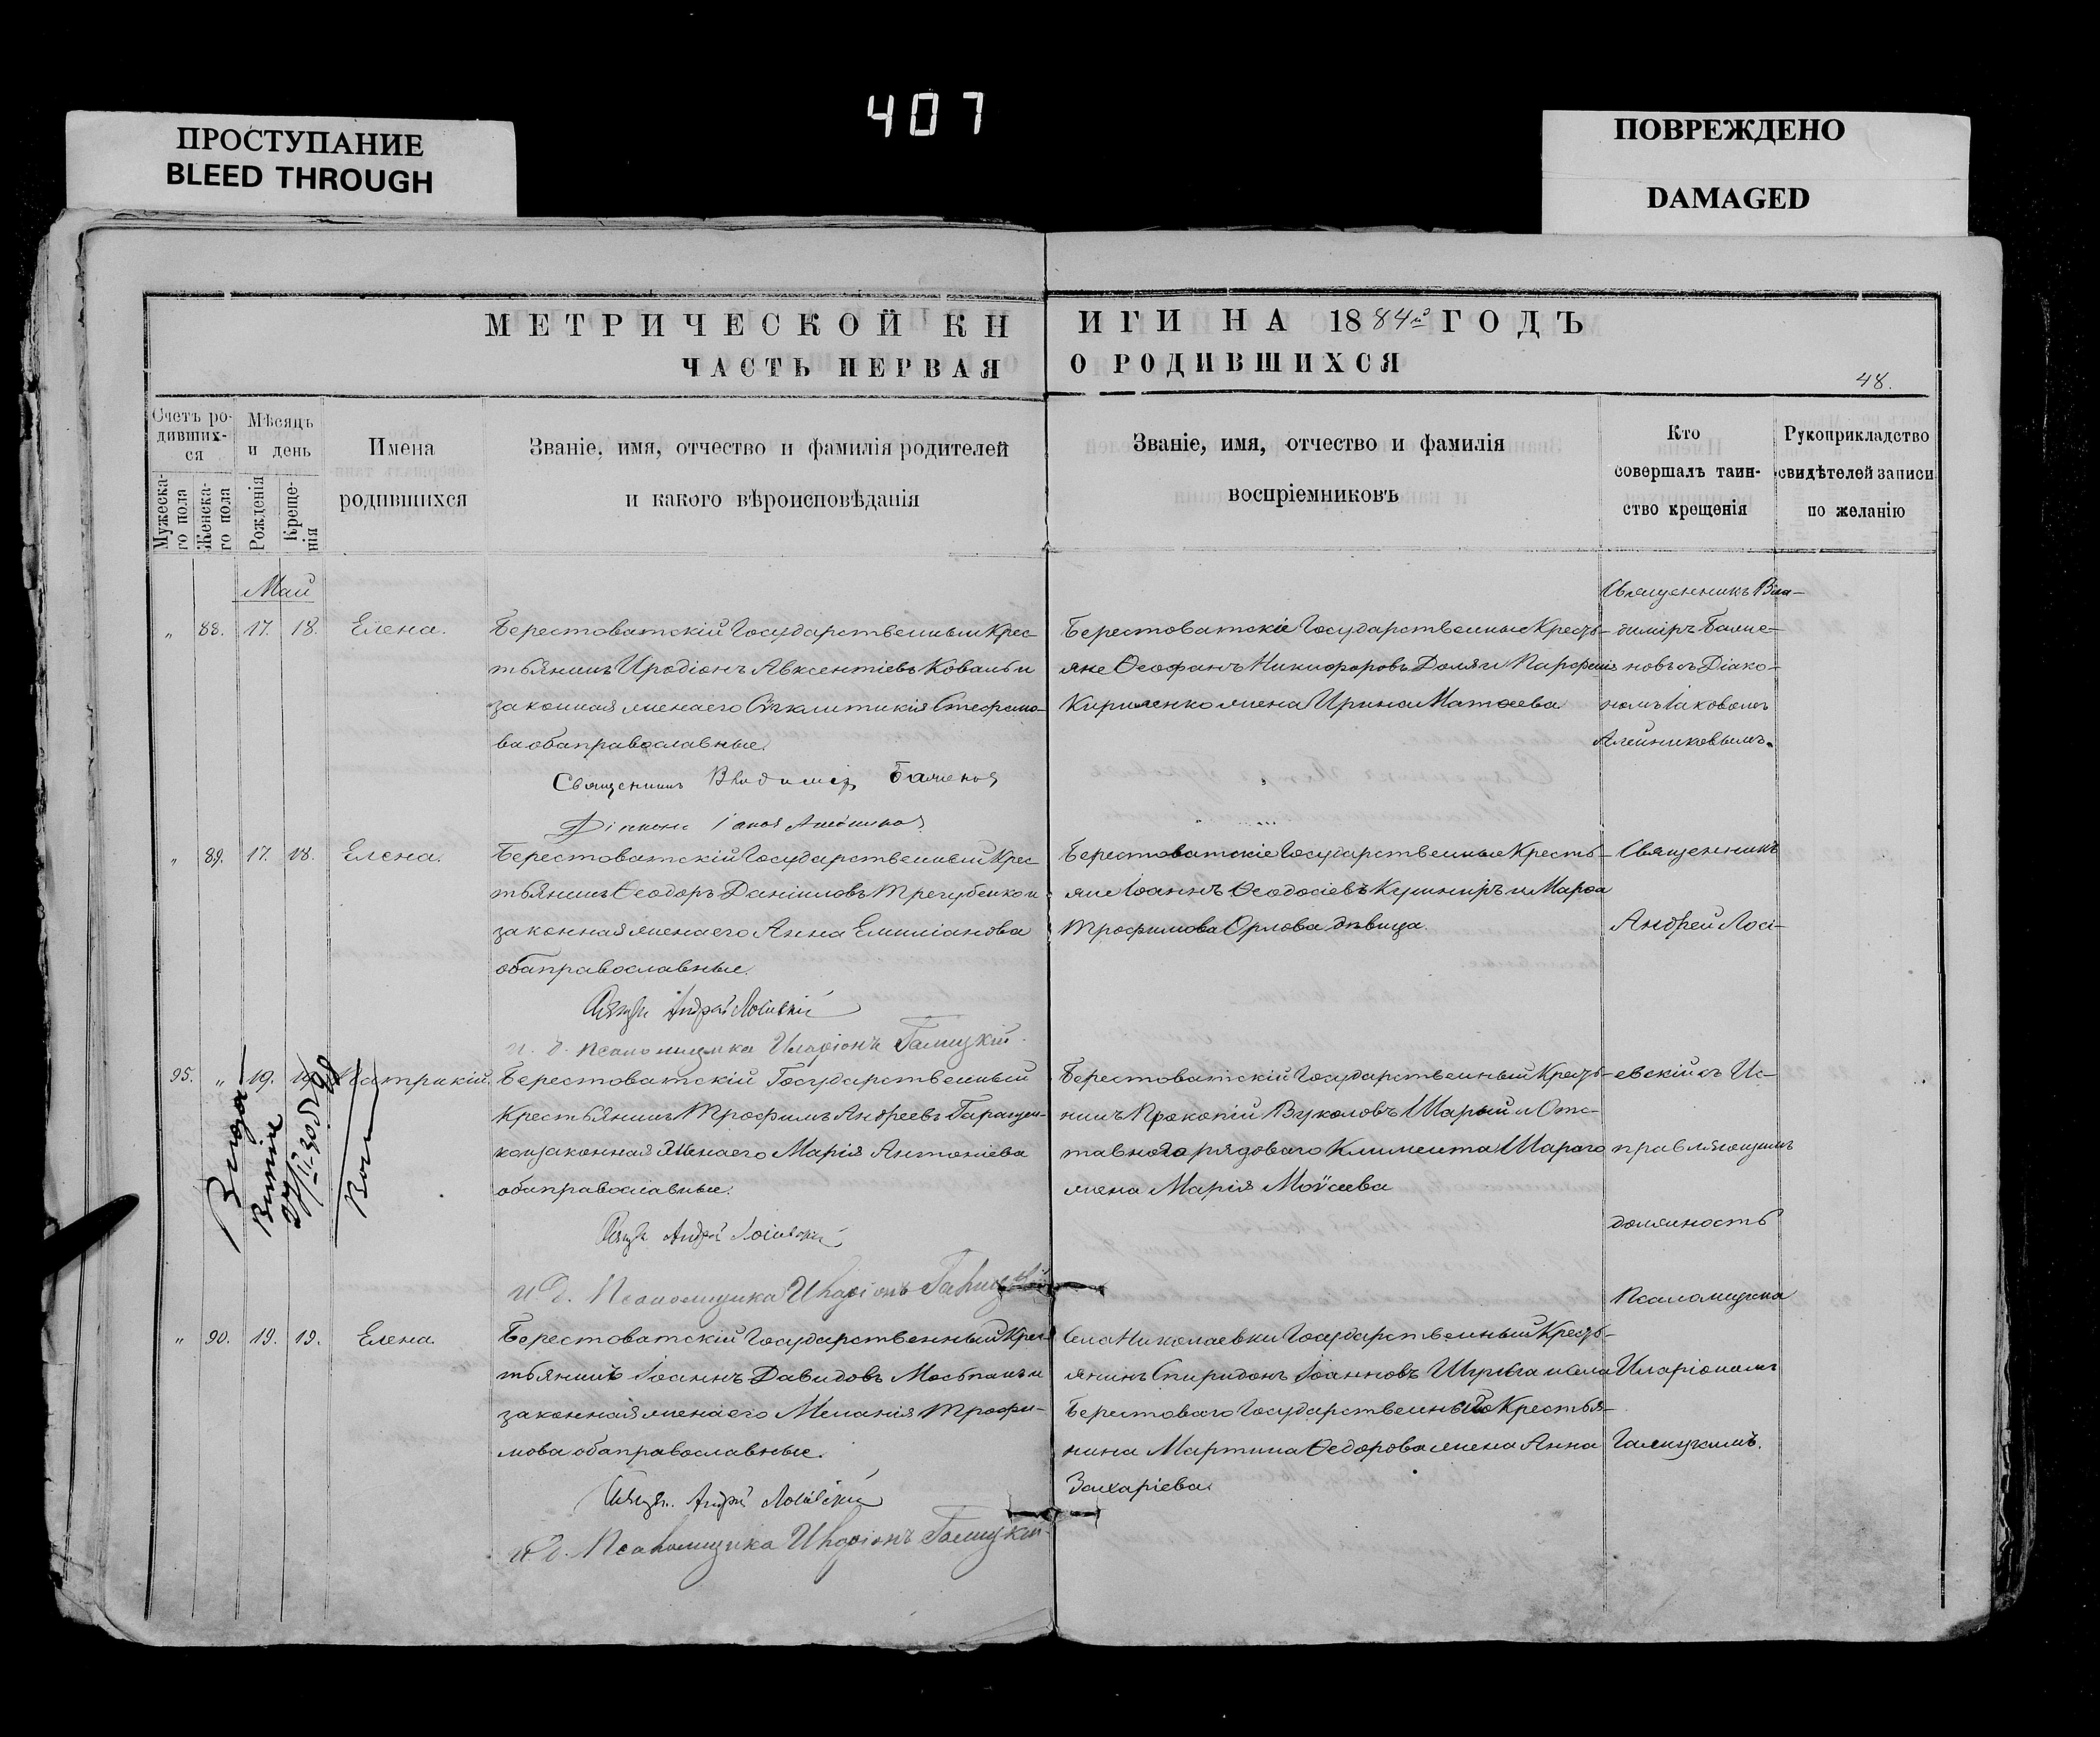 407
ПРОСТУПАНИЕ
BLEED THROUGH
ПОВРЕЖДЕНО
DAMAGED
МЕТРИЧЕСКОЙ КН
ИГИ НА 1884й ГОДЪ
ЧАСТЬ ПЕРВАЯ
О РОДИВШИХСЯ
48.
Счетъ ро-
дивших-
ся
Мужеска-
го пола
Женска-
го пола
Мѣсяцъ
и день
Рожденія
Креще-
нія
Имена
родившихся
Званіе, имя, отчество и фамилія родителей
и какого вѣроисповѣданія
Званіе, имя, отчество и фамилія
воспріемниковъ
Кто
совершалъ таин-
ство крещенія
Рукоприкладство
свидѣтелей записи
по желанію
Май
„ 88. 17. 18. Елена.
Берестоватскій Государственный Крес-
тьянинъ Иродіонъ Авксентіевъ Коваль и
законная жена его Сѵгклитикія Стефано-
ва оба православные.
Священникъ Владиміръ Баженов
Діаконъ Іаков Алейников
Берестоватскіе Государственные Кресть-
яне Ѳеофанъ Никифоровъ Доля и Парфенія
Кириленко жена Ирина Матѳеева
Священникъ Вла-
диміръ Баже-
новъ съ Діако-
номъ Іаковомъ
Алейниковымъ.
„ 89. 17. 18. Елена.
Берестоватскій Государственный Крес-
тьянинъ Ѳеодоръ Даніиловъ Трегубенко и
законная жена его Анна Емиліанова
оба православные.
Андрей Лосіевскій
и. д. псаломщика Иларіонъ Галицкій.
Берестоватскіе Государственные Кресть-
яне Іоаннъ Ѳеодосіевъ Куриниръ и Марѳа
Трофимова Орлова дѣвица.
Священникъ
Андрей Лосі-
95. „ 19. 19. Патрикій.
Берестоватскій Государственный
Крестьянинъ Трофимъ Андреевъ Гаращен-
ко и законная жена его Марія Антоніева
оба православные.
Андрей Лосіевскій
и д. Псаломщика Иларіонъ Галицкій
Берестоватскій Государственный Кресть-
нинъ Прокопій Вуколовъ Шарый и Отс-
тавного рядового Климента Шараго
жена Марія Моѵсеева
евскій съ Ис-
правляющимъ
должность
Псаломщика
„ 90. 19. 19. Елена.
Берестоватскій Государственный Крес-
тьянинъ Іоаннъ Давидовъ Мосьпанъ и
законная жена его Меланія Трофи-
мова оба православные.
Андрей Лосіевскій
и д. Псаломщика Иларіонъ Галицкій
Села Николаевки Государственный Кресть-
янинъ Спиридонъ Іоанновъ Шульга и села
Берестоваго Государственнаго Крестья-
нина Мартина Ѳедорова жена Анна
Захаріева.
Иларіономъ
Галицкимъ.